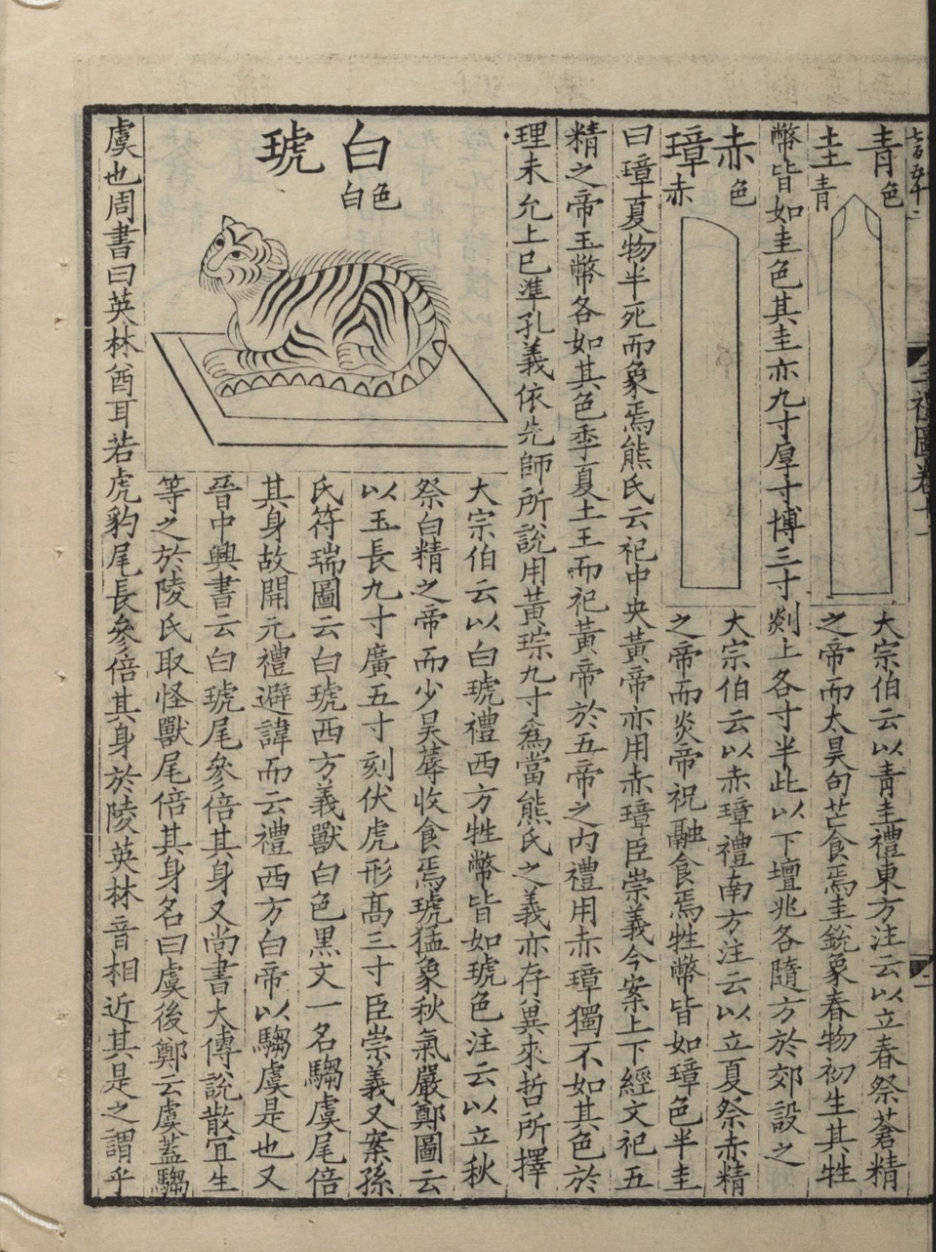 青色
圭青
大宗伯云以青圭禮東方注云以立春祭蒼精
之帝而太昊句芒食焉圭銳象春物初生其牲
幣皆如圭色其圭亦九寸厚寸博三寸剡上各寸半此以下壇兆各隨方於郊設之
赤色
璋赤
大宗伯云以赤璋禮南方注云以立夏祭赤精
之帝而炎帝祝融食焉牲幣皆如璋色半圭
曰璋夏物半死而象焉熊氏云祀中央黃帝亦用赤璋臣崇義今案上下經文祀五
精之帝玉幣各如其色季夏土王而祀黃帝於五帝之内禮用赤璋獨不如其色於
理未允上已準孔義依先師所說用黃琮九寸為當熊氏之義亦存異來哲所擇
白色
琥白
大宗伯云以白琥禮西方牲幣皆如琥色注云以立秋
祭白精之帝而少昊蓐收食焉琥猛象秋氣嚴鄭圖云
以玉長九寸廣五寸刻伏虎形高三寸臣崇義又案孫
氏符瑞圖云白琥西方義獸白色黑文一名騶虞尾倍
其身故開元禮避諱而云禮西方白帝以騶虞是也又
晉中興書云白琥尾參倍其身又尚書大傳說散宜生
等之於陵氏取怪獸尾倍其身名曰虞後鄭云虞蓋騶
虞也周書曰英林酋耳若虎豹尾長參倍其身於陵英林音相近其是之謂乎